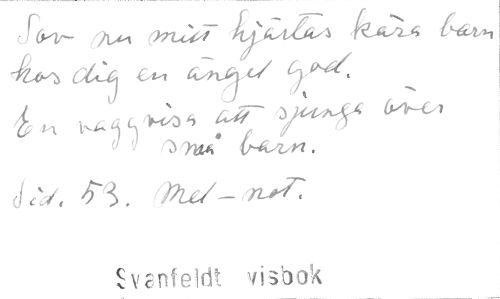 Sov nu mitt hjärtas kära barn
hos dig en ängel god.
En vaggvisa att sjunga över
små barn.
Sid. 53. Mel-not.
Svanfeldt visbok